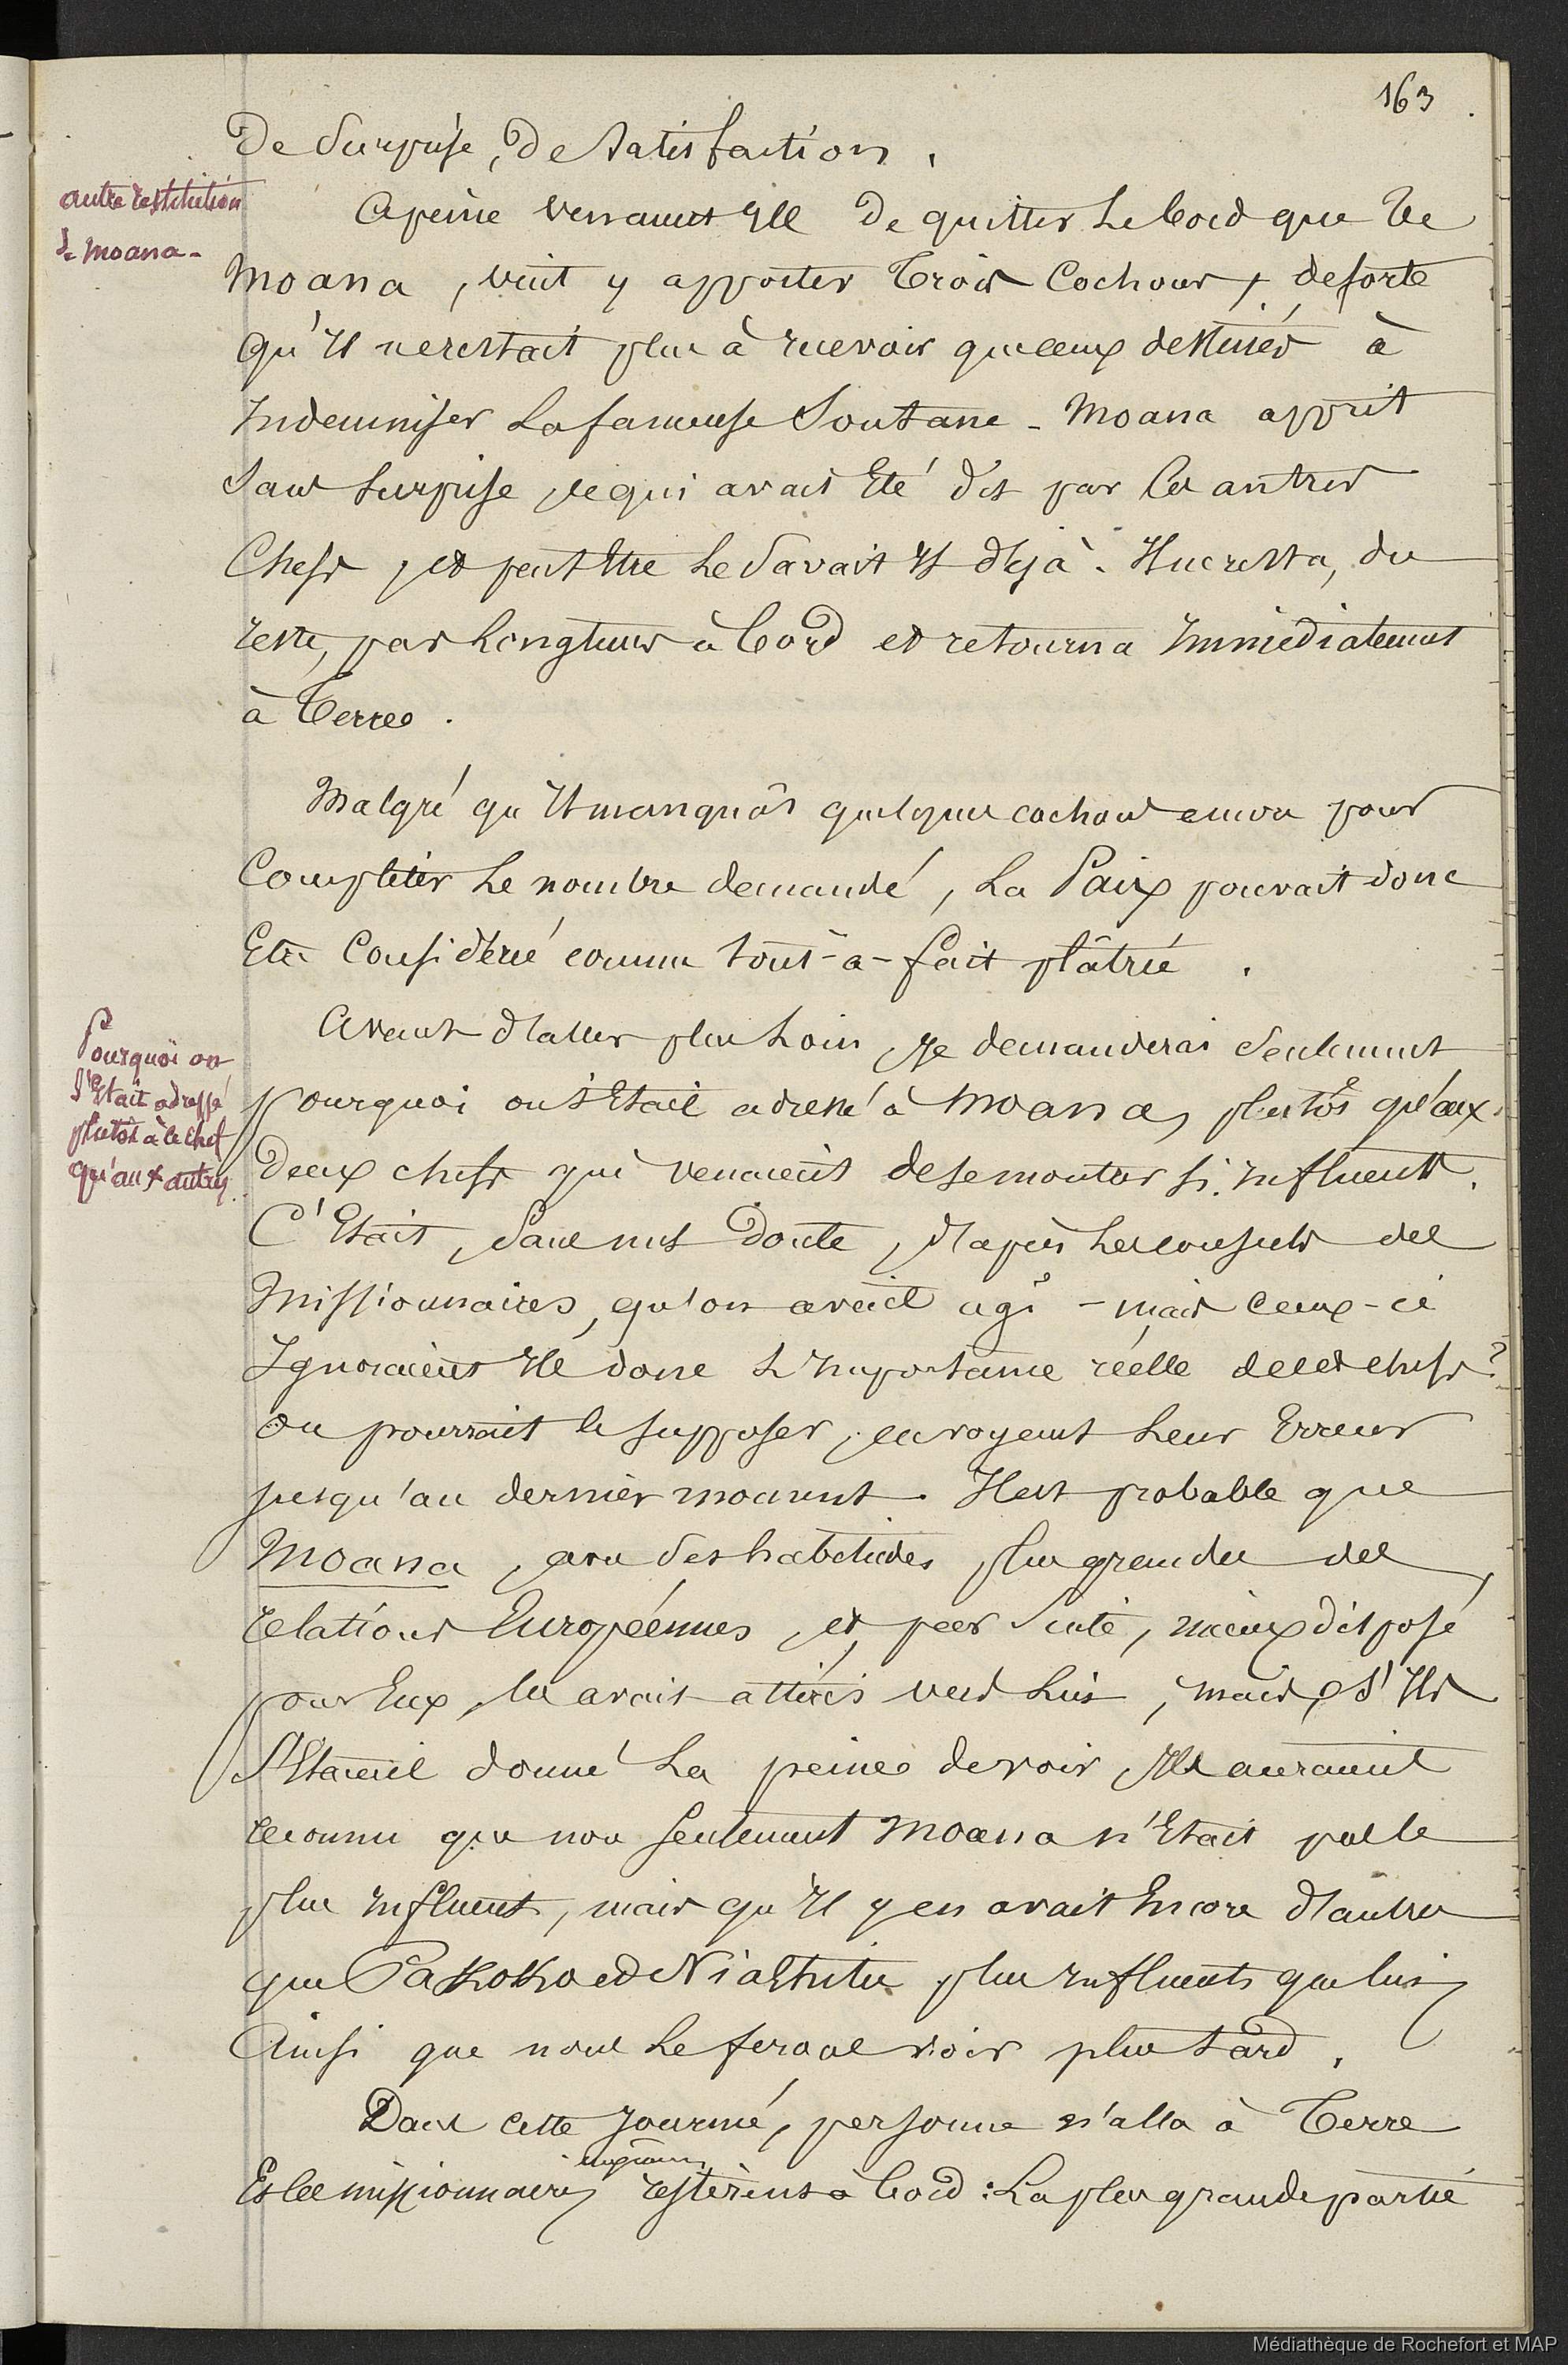 163
De Surprise, De Satisfaction.
autre restitution
de moana -
Apeine venaient Ils De quitter Le bord que Te
Moana, vint y apporter Trois Cochons, de sorte
qu'Il ne restait plus à recevoir que ceux destinés à
Indemniser La fameuse Soutane - Moana apprit
Sans Surprise, ce qui avait Eté dit par les autres
Chefs, et peut Etre Le Savait Il déjà. Il ne resta, du
reste, pas Longtems à bord et retourna Immédiatement
à Terre.
Malgré qu'Il manquât quelques cochons encore pour
Completer Le nombre demandé, La Paix pouvait donc
Etre Considérée comme tout-à-fait plâtrée.
Pourquoi on
s'Etait adressé
plutôt à ce chef
qu'aux autres
Avant d'aller plus Loin, Je demanderai Seulement
pourquoi on s'Etait adressé à Moana, plutôt qu'aux
Deux chefs qui venaient de se montrer si Influents.
C'Etait, Sans nul Doute, d'après Les conseils des
Missionnaires, qu'on avait agi - mais Ceux-ci
Ignoraient Ils donc L'Importance réelle de ces chefs?
On pourrait le supposer, en voyant Leur Erreur
jusqu'au dernier moment. Il est probable que
Moana, avec des habitudes plus grandes des
relations Européennes, et, par Suite, mieux disposé
pour Eux, les avait attirés vers Lui, mais, s'Ils
S'Etaient donné La peine de voir, Ils auraient
reconnu que non seulement Moana n'Etait pas le
plus Influent, mais qu'Il y en avait Encore d'autres
que Pakoko et Niahitu plus Influents que lui,
Ainsi que nous Le ferons voir plus tard.
Dans cette Journée, personne n'alla à Terre
Et les missionnaires restèrent à bord : La plus grande partie
Médiathèque de Rochefort et MAP